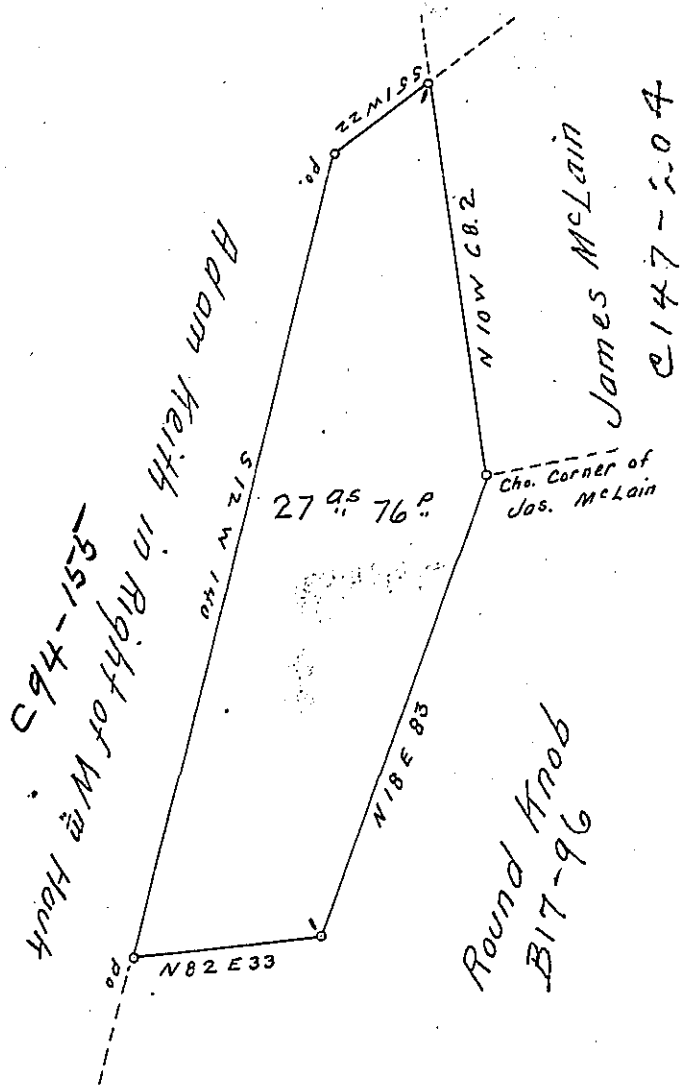 C94-155
Adam Keith in Right of Wm Houk
S51W22
po.
S 12 W 140
N 10 W 68.2
James McLain
C147-204
Cho. Corner of
Jas. McLain
27 as 76 p
N 18 E 83
po
N 82 E 33
Round Knob
B17-96